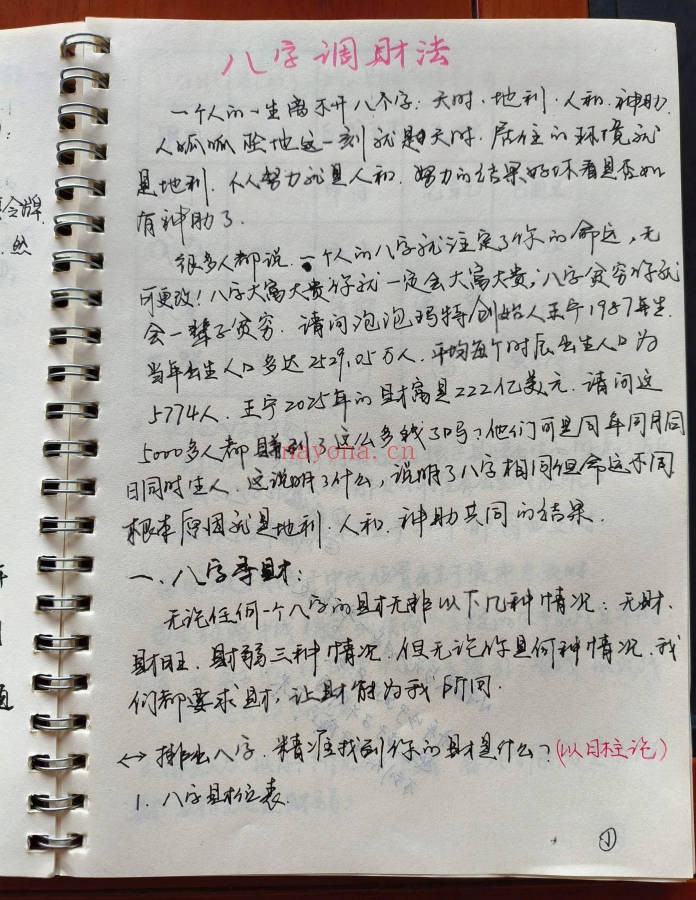 八字调财法
一个人的一生离不开八个字：天时、地利、人和、神助。
人呱呱坠地这一刻就是天时，居住的环境就
是地利，个人努力就是人和，努力的结果好坏看是否如
有神助了。
很多人都说，一个人的八字就注定了你的命运，无
可更改！八字大富大贵你就一定会大富大贵，八字贫穷你就
会一辈子贫穷。请问泡泡玛特创始人王宁1987年生，
当年出生人口多达2529.05万人，平均每个时辰出生人口为
5774人，王宁2025年的财富是222亿美元，请问这
5000多人都赚到了这么多钱了吗？他们可是同年同月同
nayona.cn
日同时生人，这说明了什么，说明了八字相同但命运不同
根本原因就是地利、人和、神助共同的结果。
一、八字寻财：
无论任何一个八字的财无非以下几种情况：无财、
财旺、财弱三种情况，但无论你是何种情况，我
们都要求财，让财能为我所用。
<-> 排出八字，精准找到你的财是什么？(以日柱论)
1. 八字财位表。
①
令牌
然